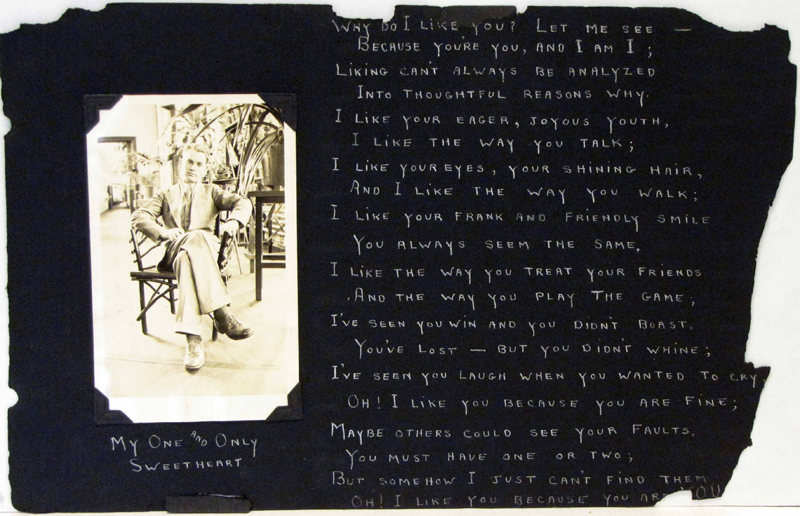 WHY DO I LIKE YOU? LET ME SEE —
BECAUSE YOU'RE YOU, AND I AM I;
LIKING CAN'T ALWAYS BE ANALYZED
INTO THOUGHTFUL REASONS WHY.
I LIKE YOUR EAGER, JOYOUS YOUTH,
I LIKE THE WAY YOU TALK;
I LIKE YOUR EYES, YOUR SHINING HAIR,
AND I LIKE THE WAY YOU WALK;
I LIKE YOUR FRANK AND FRIENDLY SMILE
YOU ALWAYS SEEM THE SAME,
I LIKE THE WAY YOU TREAT YOUR FRIENDS
AND THE WAY YOU PLAY THE GAME;
I'VE SEEN YOU WIN AND YOU DIDN'T BOAST,
YOU'VE LOST — BUT YOU DIDN'T WHINE;
I'VE SEEN YOU LAUGH WHEN YOU WANTED TO CRY,
OH! I LIKE YOU BECAUSE YOU ARE FINE;
MAYBE OTHERS COULD SEE YOUR FAULTS,
YOU MUST HAVE ONE OR TWO;
BUT SOMEHOW I JUST CAN'T FIND THEM
OH! I LIKE YOU BECAUSE YOU ARE YOU
MY ONE AND ONLY
SWEETHEART